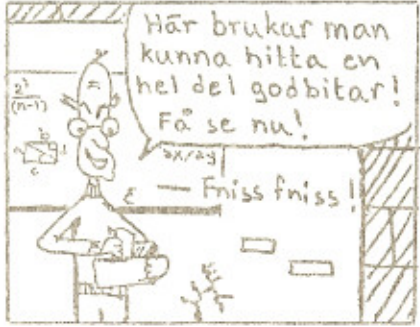 Här brukar man
kunna hitta en
hel del godbitar!
Få se nu!
(n-1)
∂x/∂y
— Fniss fniss!